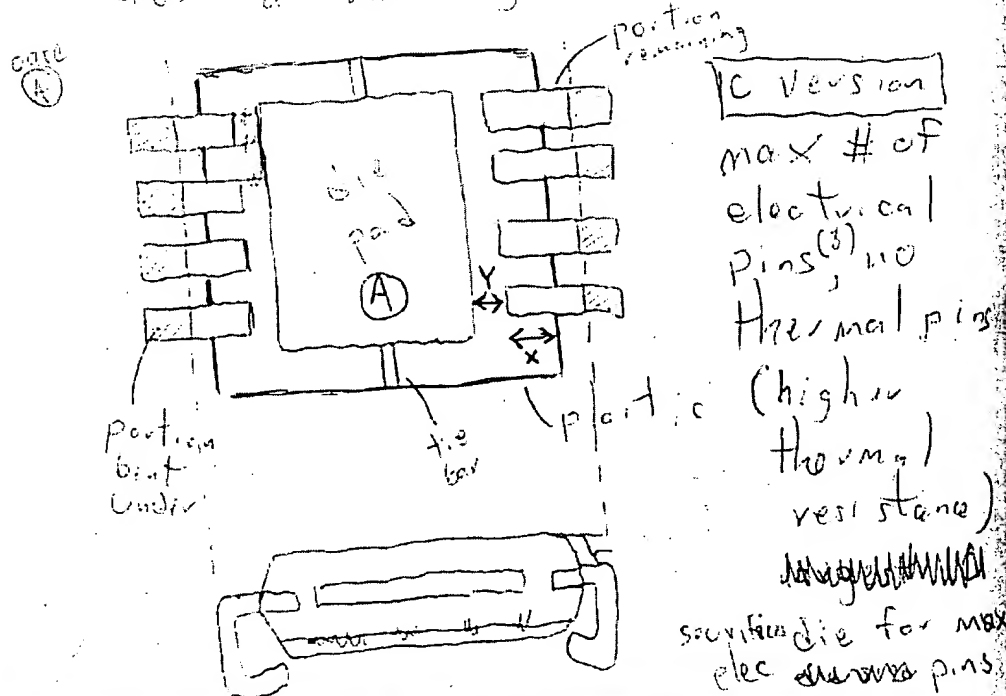 case
A
portion
remaining
die
pad
A
Y
x
portion
bent
under
tie
bar
plastic
IC Version
max # of
electrical
pins (8), no
thermal pins
(higher
thermal
resistance)
die for max
elec pins